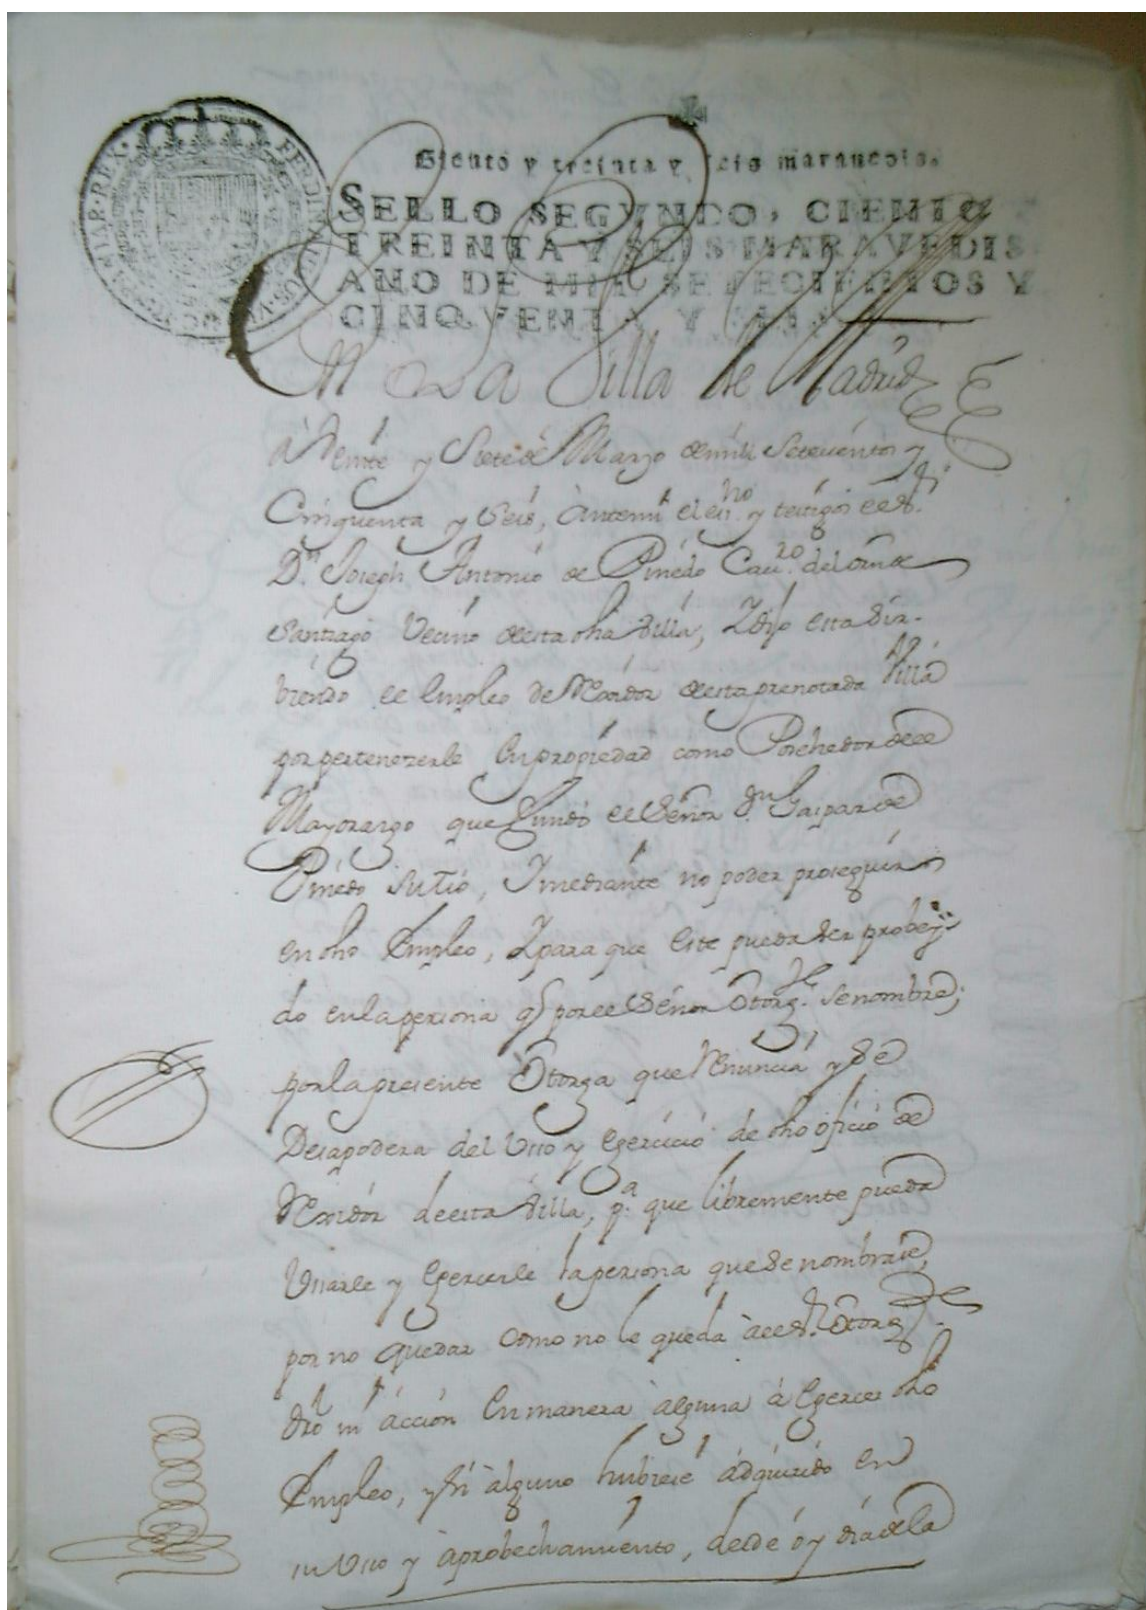 FERDINANDUS·VI·D·G·HISPANIAR·REX·
Ciento y treinta y seis maravedis.
SELLO SEGVNDO, CIENTO
TREINTA Y SEIS MARAVEDIS
AÑO DE MIL SETECIENTOS Y
CINQVENTA Y SEIS.
En La Villa de Madrid
à Veinte y Siete de Marzo de mill Setecientos y
Cinquenta y Seis, Antemi el ess.no y testigos el S.r
D.n Joseph Antonio de Pinedo Cau.ro del orn de
Santiago Vecino de esta dha Villa, Y dijo está Sir-
biendo el Empleo de Rexidor de esta prenotada Villa
por pertenezerle en propiedad como Poshedor del
Mayorazgo que fundó el Señor D.n Gaspar de
Pinedo su tio, Y mediante no poder proseguir
en dho Empleo, Y para que este pueda ser probey-
do en la persona q.e por el Señor Otorg.te se nombre;
por la presente Otorga que Renuncia y Se
Desapodera del Usso y Egercicio de dho oficio de
Rexidor de esta Villa, p.a que libremente pueda
Usarle y Egercerle la persona que se nombrase,
por no quedar como no le queda à el S.r Otorg.te
dro ni acción en manera alguna á Egercer dho
Empleo, y si alguno hubiese adquirido en
su Usso y aprobechamiento, desde oy dia de la